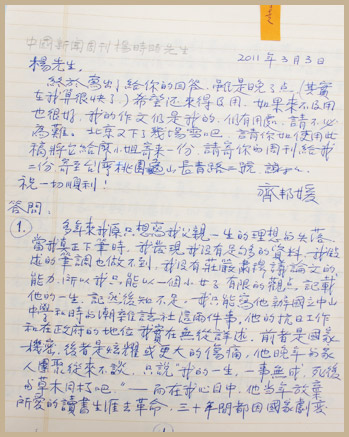 中國新聞周刊楊時暘先生
2011年3月3日
楊先生:
終於寫出給你的回答,雖是晚了点。(其實
在我算很快了)希望还來得及用,如果來不及用
也很好,我的作文仍是我的,仍有用處,請不必
為難。北京又下了幾場雪吧,請你如使用此
稿將它給 小姐寄來一份,請寄你的周刊給我
二份,寄至台灣桃園龜山長青路二號,謝謝。
祝一切順利!
齊邦媛
答問:
1. 多年來我原只想寫我父親一生的理想的失落,
當我真正下筆時,我發現我沒有足夠的資料,我敍
述的筆調也做不到,我沒有莊嚴肅穆議論文的
能力,所以我只能以一個小女子有限的觀点,記載
他的一生,記然後知不足,我只能寫他辦國立中山
中學和時與潮雜誌社這兩件事,他的抗日工作
和在政府的地位我實在無從詳述,前者是國家
機密,後者是炫耀或更大的傷痛,他晚年與家
人團聚從來不談,只說“我的一生,一事無成,死後
與草木同朽吧。”——而在我心目中,他當年放棄
所愛的讀書生涯去革命,三十年間都因國家劇變